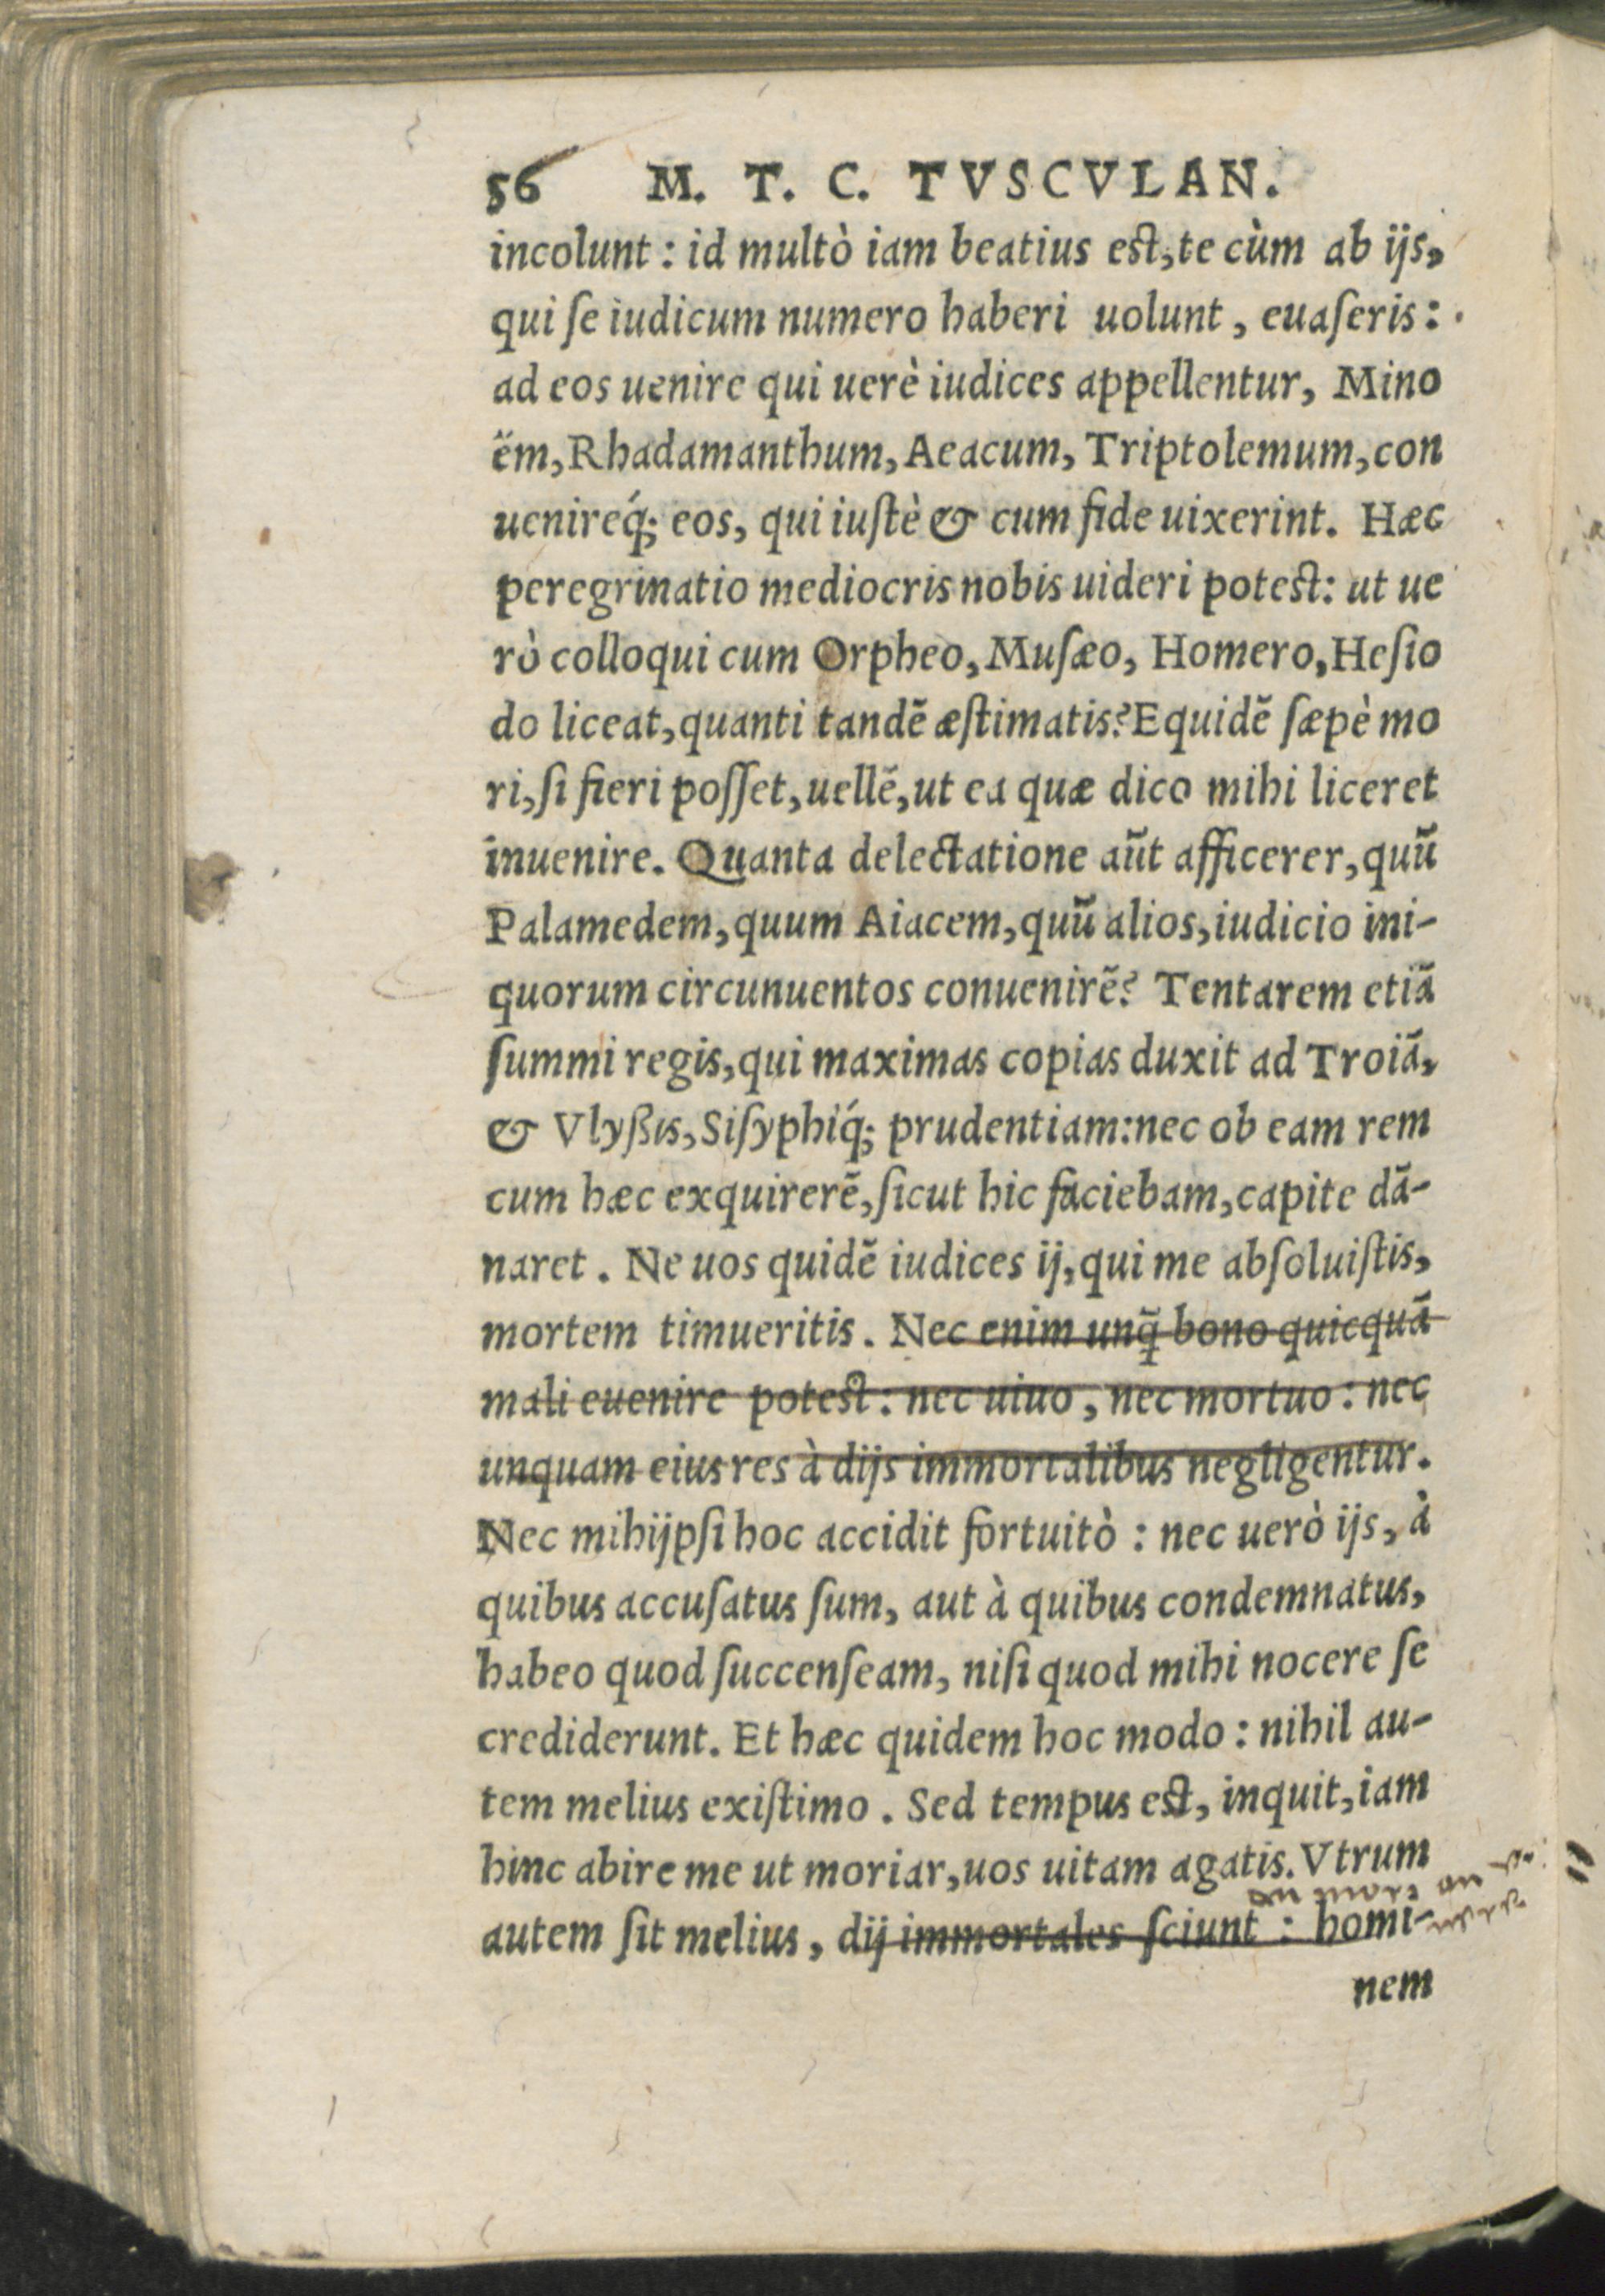 56 M. T. C. TVSCVLAN.
incolunt: id multò iam beatius est, te cùm ab ijs,
qui ſe iudicum numero haberi uolunt, euaſeris:
ad eos uenire qui uerè iudices appellentur, Mino
ëm, Rhadamanthum, Aeacum, Triptolemum, con
uenireq́; eos, qui iuſtè & cum fide uixerint. Hæc
peregrinatio mediocris nobis uideri potest: ut ue
rò colloqui cum Orpheo, Muſæo, Homero, Heſio
do liceat, quanti tandẽ æſtimatis? Equidẽ ſæpè mo
ri, ſi fieri poſſet, uellẽ, ut ea quæ dico mihi liceret
inuenire. Quanta delectatione aũt afficerer, quũ
Palamedem, quum Aiacem, quũ alios, iudicio ini-
quorum circunuentos conuenirẽ? Tentarem etiã
ſummi regis, qui maximas copias duxit ad Troiã,
& Vlyßis, Siſyphiq́; prudentiam: nec ob eam rem
cum hæc exquirerẽ, ſicut hic faciebam, capite dã-
naret. Ne uos quidẽ iudices ij, qui me abſoluiſtis,
mortem timueritis. Nec enim unq̃ bono quicquã
mali euenire potest: nec uiuo, nec mortuo: nec
unquam eius res à dijs immortalibus negligentur.
Nec mihijpſi hoc accidit fortuitò: nec uerò ijs, à
quibus accuſatus ſum, aut à quibus condemnatus,
habeo quod ſuccenſeam, niſi quod mihi nocere ſe
crediderunt. Et hæc quidem hoc modo: nihil au-
tem melius exiſtimo. Sed tempus est, inquit, iam
hinc abire me ut moriar, uos uitam agatis. Vtrum
an mors an
autem ſit melius, dij immortales ſciunt: homi-
nem